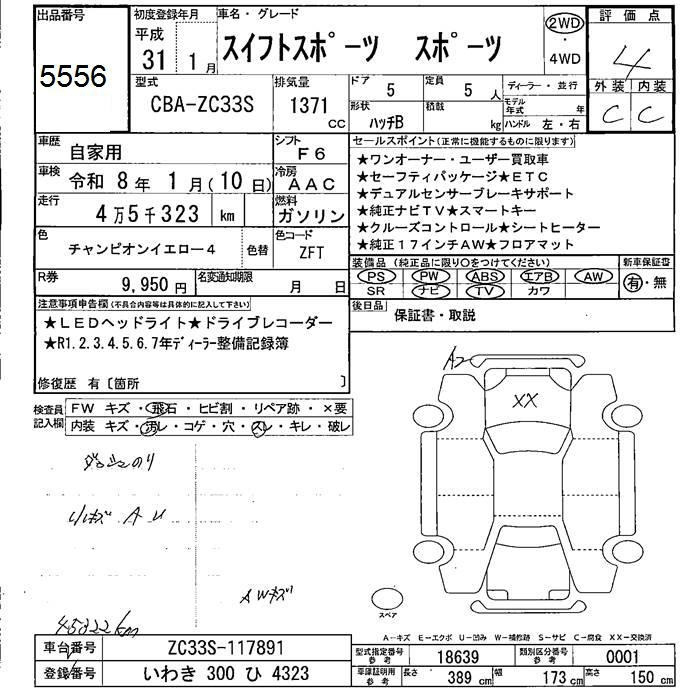 出品番号
5556
初度登録年月
平成
31 1月
車名・グレード
スイフトスポーツ スポーツ
2WD
・
4WD
評価点
4
外装 内装
C C
型式
CBA-ZC33S
排気量
1371
CC
ドア 5
定員 5 人
形状 ハッチB
積載 kg
ディーラー・並行
モデル年式 年
ハンドル 左・右
車歴
自家用
シフト
F6
車検
令和 8年 1月(10日)
冷房
AAC
走行
4万5千323 km
燃料
ガソリン
色
チャンピオンイエロー4
色替
色コード
ZFT
R券
9,950円
名変通知期限
月 日
セールスポイント(正常に機能するものに限ります)
★ワンオーナー・ユーザー買取車
★セーフティパッケージ★ETC
★デュアルセンサーブレーキサポート
★純正ナビTV★スマートキー
★クルーズコントロール★シートヒーター
★純正17インチAW★フロアマット
装備品(純正品に限り○をつけてください)
PS PW ABS エアB AW
SR ナビ TV カワ
新車保証書
有・無
後日品
保証書・取説
注意事項申告欄(不具合内容等は具体的に記入して下さい)
★LEDヘッドライト★ドライブレコーダー
★R1.2.3.4.5.6.7年ディーラー整備記録簿
修復歴 有〔箇所 〕
検査員
記入欄
FW キズ・飛石・ヒビ割・リペア跡・×要
内装 キズ・汚レ・コゲ・穴・スレ・キレ・破レ
XX
AU
AWキズ
45322km
スペア
A-キズ E-エクボ U-凹み W-補修跡 S-サビ C-腐食 XX-交換済
車台番号
ZC33S-117891
登録番号
いわき 300 ひ 4323
型式指定番号
参考
18639
類別区分番号
参考
0001
車庫証明用
参考
長さ 389 cm
幅 173 cm
高さ 150 cm